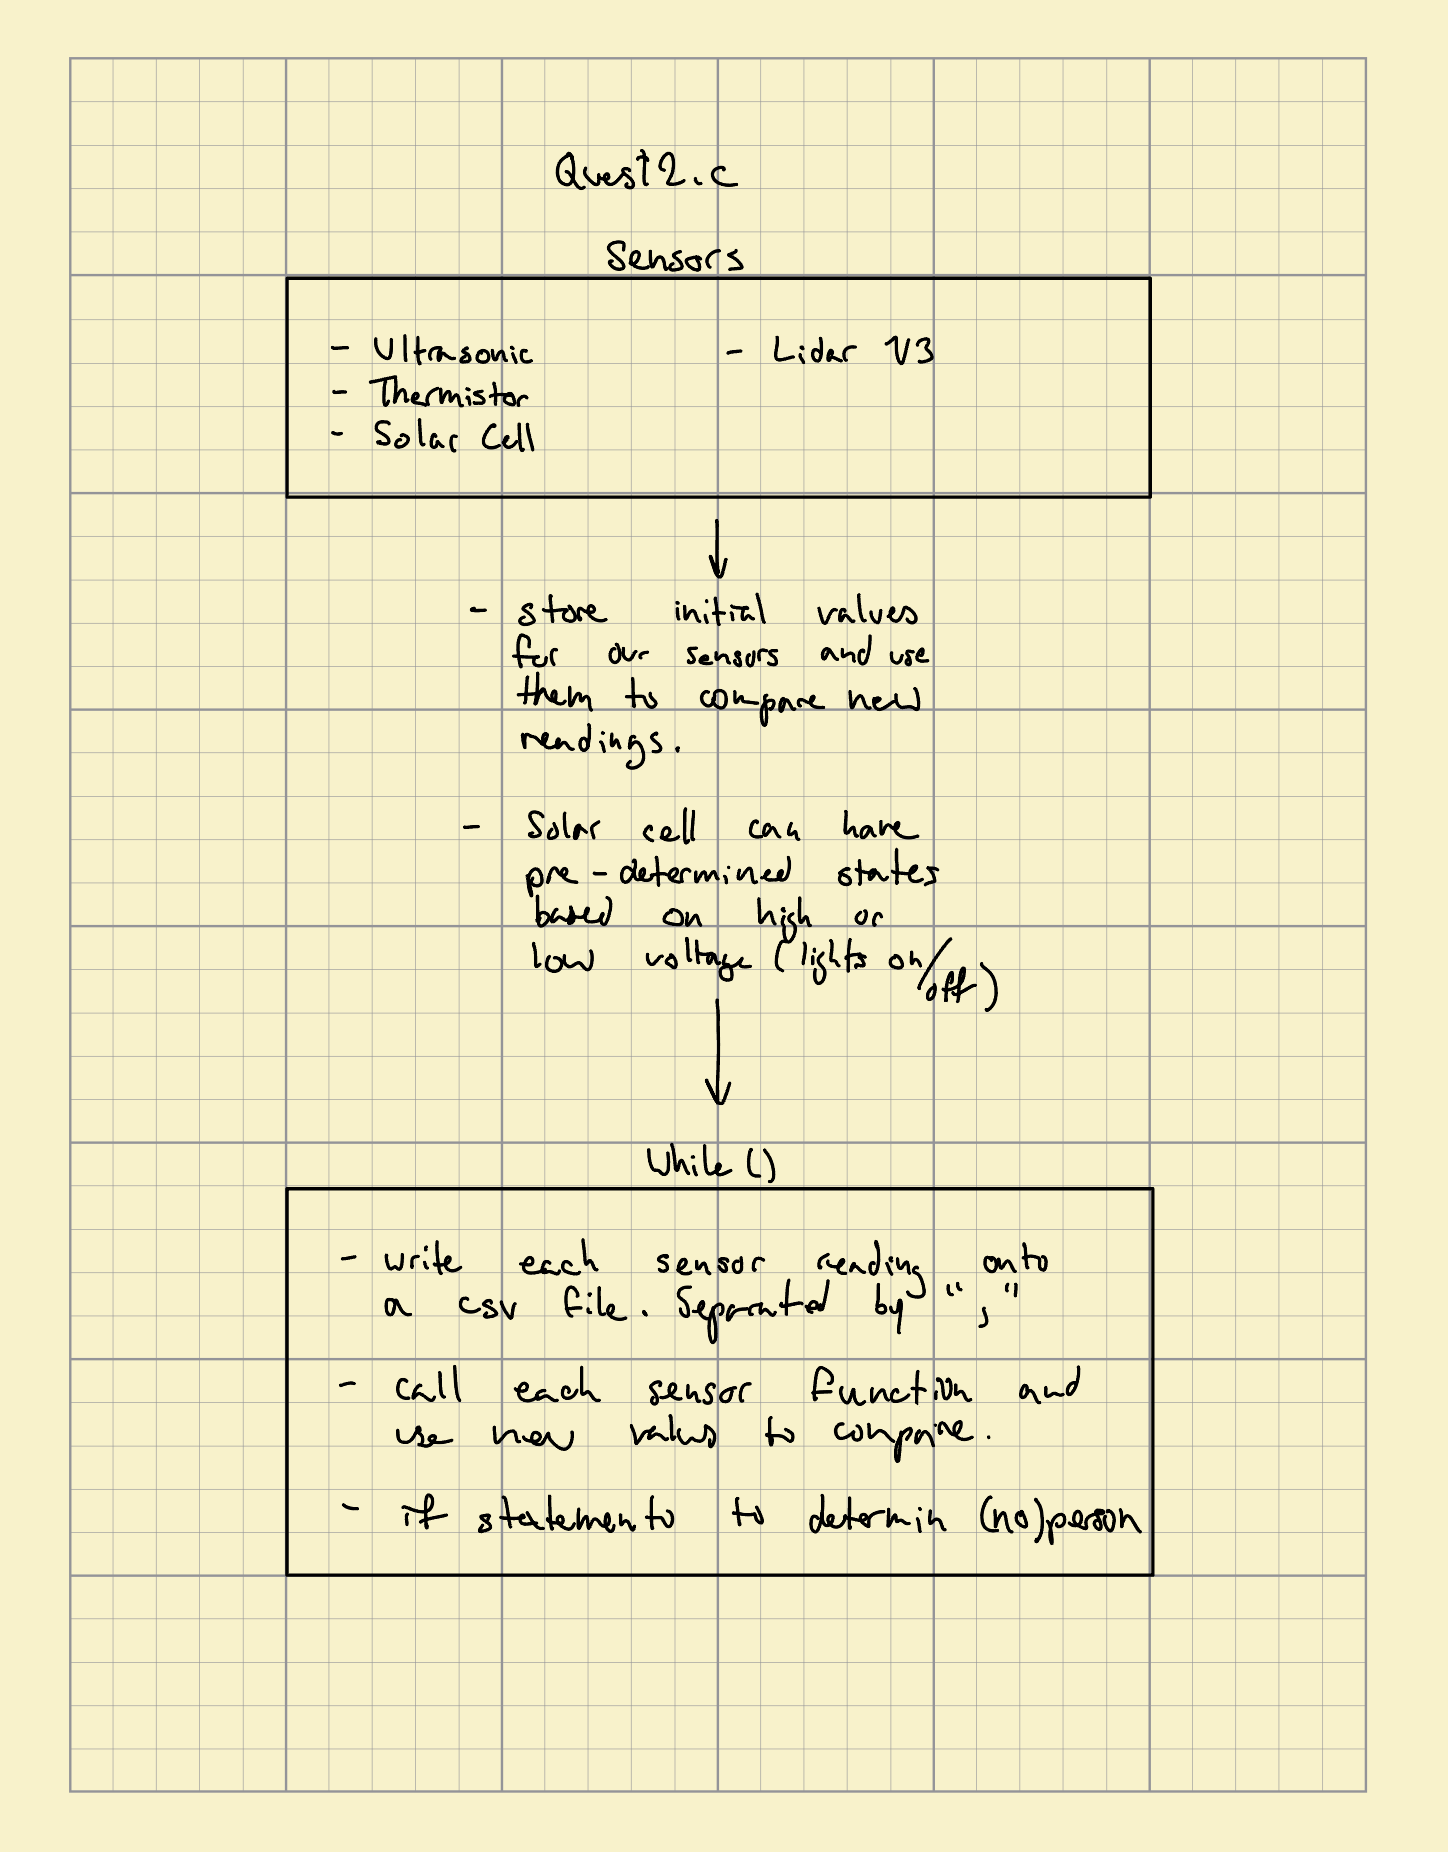 Quest2.c
Sensors
- Ultrasonic - Lidar V3
- Thermistor
- Solar Cell
- store initial values
for our sensors and use
them to compare new
readings.
- Solar cell can have
pre-determined states
based on high or
low voltage (lights on/
off)
While ()
- write each sensor reading onto
a csv file. Separated by ","
- call each sensor function and
use new values to compare.
- if statements to determin (no)person